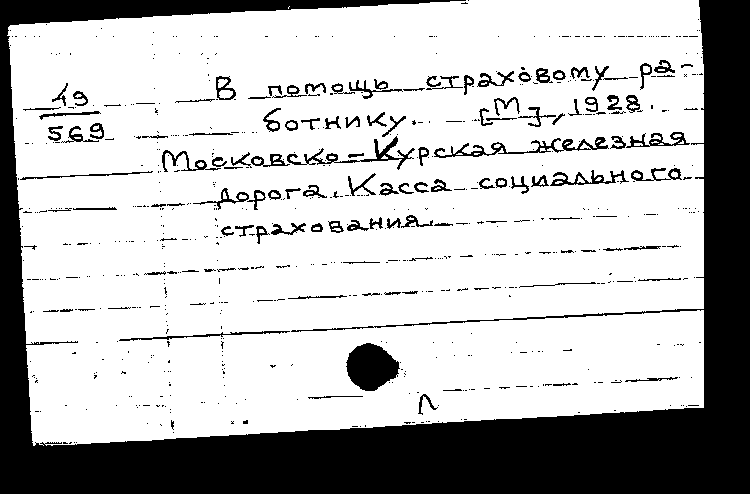 19
569
В помощь страховому ра-
ботнику. [М], 1928.
Московско-Курская железная
дорога. Касса социального
страхования.
л